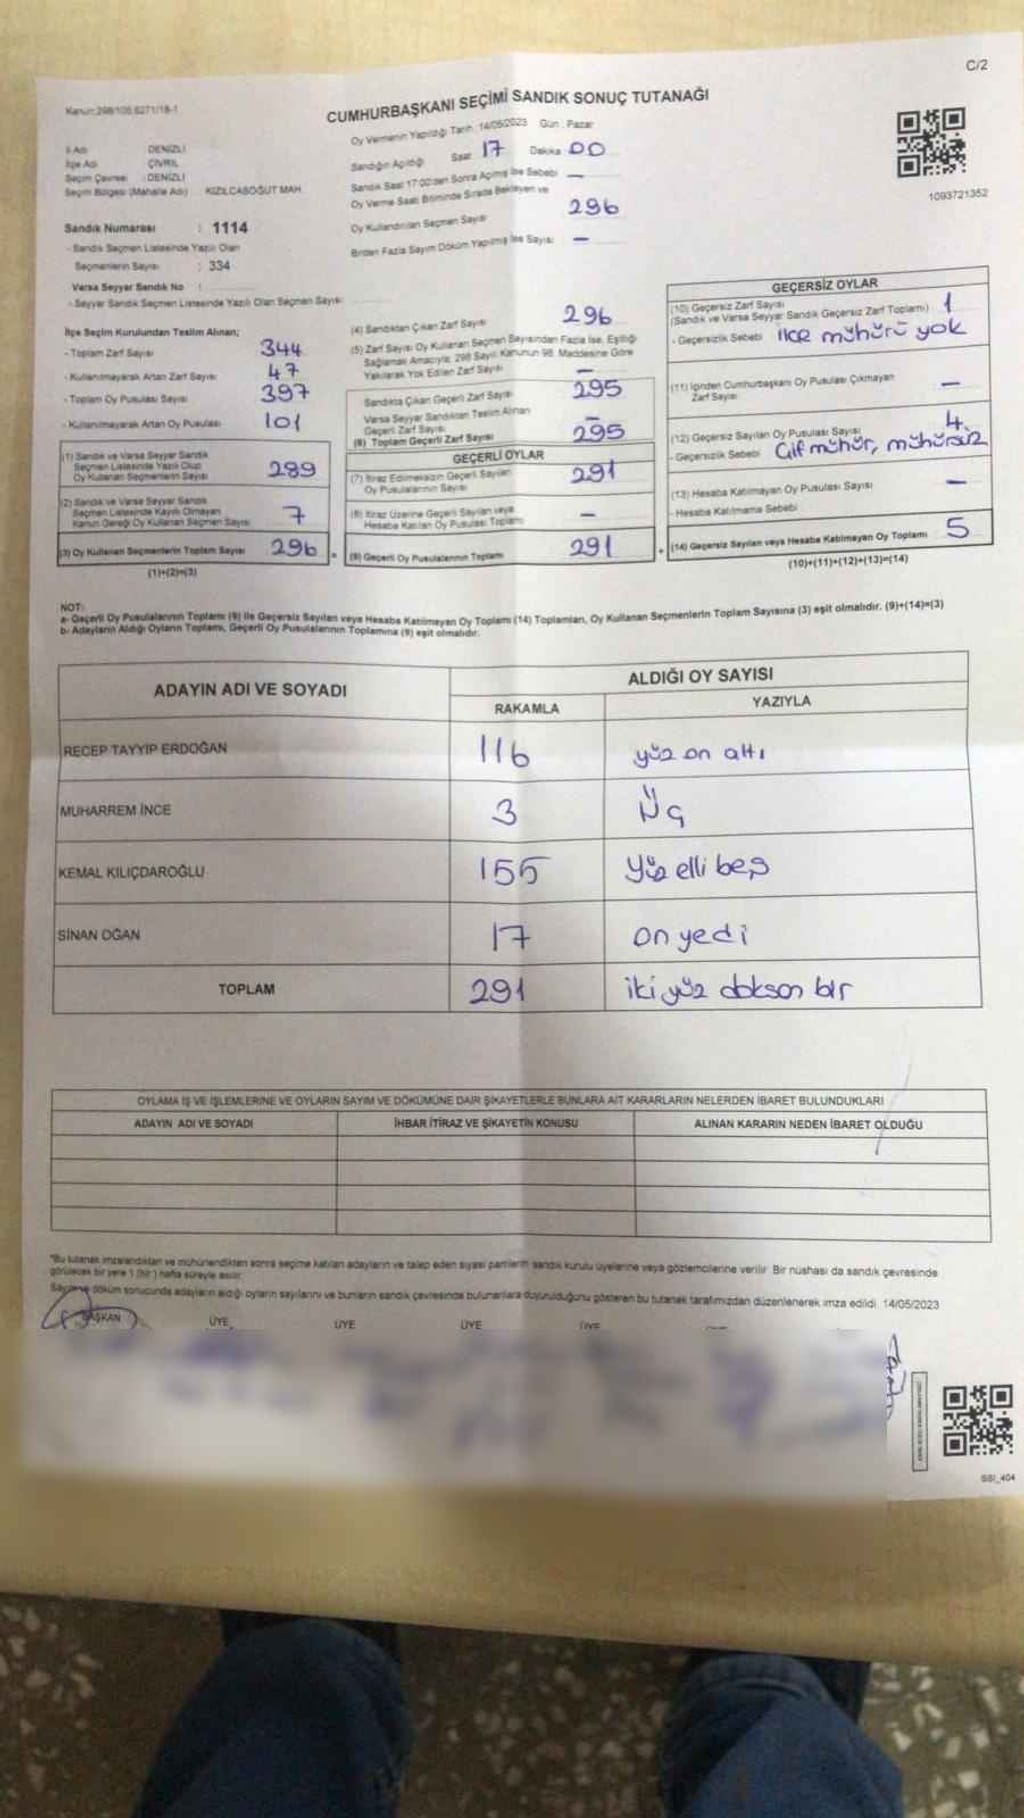 C/2
Kanun:298/105 6271/18-1
CUMHURBAŞKANI SEÇİMİ SANDIK SONUÇ TUTANAĞI
Oy Vermenin Yapıldığı Tarih: 14/05/2023 Gün: Pazar
İl Adı DENİZLİ
İlçe Adı ÇİVRİL
Seçim Çevresi DENİZLİ
Seçim Bölgesi (Mahalle Adı) KIZILCASÖĞÜT MAH.
Sandığın Açıldığı Saat 17 Dakika 00
Sandık Saat 17:00'den Sonra Açılmış İse Sebebi —
Oy Verme Saati Bitiminde Sırada Bekleyen ve
Oy Kullandırılan Seçmen Sayısı 296
Birden Fazla Sayım Döküm Yapılmış İse Sayısı: —
1093721352
Sandık Numarası : 1114
- Sandık Seçmen Listesinde Yazılı Olan
Seçmenlerin Sayısı : 334
Varsa Seyyar Sandık No :
- Seyyar Sandık Seçmen Listesinde Yazılı Olan Seçmen Sayısı:
İlçe Seçim Kurulundan Teslim Alınan;
- Toplam Zarf Sayısı 344
- Kullanılmayarak Artan Zarf Sayısı 47
- Toplam Oy Pusulası Sayısı 397
- Kullanılmayarak Artan Oy Pusulası 101
(1) Sandık ve Varsa Seyyar Sandık
Seçmen Listesinde Yazılı Olup
Oy Kullanan Seçmenlerin Sayısı 289
(2) Sandık ve Varsa Seyyar Sandık
Seçmen Listesinde Kayıtlı Olmayan
Kanun Gereği Oy Kullanan Seçmen Sayısı 7
(3) Oy Kullanan Seçmenlerin Toplam Sayısı 296
(1)+(2)=(3)
(4) Sandıktan Çıkan Zarf Sayısı 296
(5) Zarf Sayısı Oy Kullanan Seçmen Sayısından Fazla İse, Eşitliği
Sağlamak Amacıyla; 298 Sayılı Kanunun 98. Maddesine Göre
Yakılarak Yok Edilen Zarf Sayısı —
Sandıkta Çıkan Geçerli Zarf Sayısı 295
Varsa Seyyar Sandıktan Teslim Alınan
Geçerli Zarf Sayısı —
(6) Toplam Geçerli Zarf Sayısı 295
GEÇERLİ OYLAR
(7) İtiraz Edilmeksizin Geçerli Sayılan
Oy Pusulalarının Sayısı 291
(8) İtiraz Üzerine Geçerli Sayılan veya
Hesaba Katılan Oy Pusulası Toplamı —
(9) Geçerli Oy Pusulalarının Toplamı 291
GEÇERSİZ OYLAR
(10) Geçersiz Zarf Sayısı
(Sandık ve Varsa Seyyar Sandık Geçersiz Zarf Toplamı) 1
- Geçersizlik Sebebi ilçe mühürü yok
(11) İçinden Cumhurbaşkanı Oy Pusulası Çıkmayan
Zarf Sayısı —
(12) Geçersiz Sayılan Oy Pusulası Sayısı 4
- Geçersizlik Sebebi Çift mühür, mühürsüz
(13) Hesaba Katılmayan Oy Pusulası Sayısı —
- Hesaba Katılmama Sebebi
(14) Geçersiz Sayılan veya Hesaba Katılmayan Oy Toplamı 5
(10)+(11)+(12)+(13)=(14)
NOT:
a- Geçerli Oy Pusulalarının Toplamı (9) ile Geçersiz Sayılan veya Hesaba Katılmayan Oy Toplamı (14) Toplamları, Oy Kullanan Seçmenlerin Toplam Sayısına (3) eşit olmalıdır. (9)+(14)=(3)
b- Adayların Aldığı Oyların Toplamı, Geçerli Oy Pusulalarının Toplamına (9) eşit olmalıdır.
ADAYIN ADI VE SOYADI
ALDIĞI OY SAYISI
RAKAMLA YAZIYLA
RECEP TAYYİP ERDOĞAN 116 yüz on altı
MUHARREM İNCE 3 Üç
KEMAL KILIÇDAROĞLU 155 Yüz elli beş
SİNAN OĞAN 17 on yedi
TOPLAM 291 iki yüz doksan bir
OYLAMA İŞ VE İŞLEMLERİNE VE OYLARIN SAYIM VE DÖKÜMÜNE DAİR ŞİKAYETLERLE BUNLARA AİT KARARLARIN NELERDEN İBARET BULUNDUKLARI
ADAYIN ADI VE SOYADI İHBAR İTİRAZ VE ŞİKAYETİN KONUSU ALINAN KARARIN NEDEN İBARET OLDUĞU
*Bu tutanak imzalandıktan ve mühürlendikten sonra seçime katılan adayların ve talep eden siyasi partilerin sandık kurulu üyelerine veya gözlemcilerine verilir. Bir nüshası da sandık çevresinde
görülecek bir yere 1 (bir) hafta süreyle asılır.
Sayım ve döküm sonucunda adayların aldığı oyların sayılarını ve bunların sandık çevresinde bulunanlara duyurulduğunu gösteren bu tutanak tarafımızdan düzenlenerek imza edildi. 14/05/2023
BAŞKAN ÜYE ÜYE ÜYE ÜYE
SSI_404